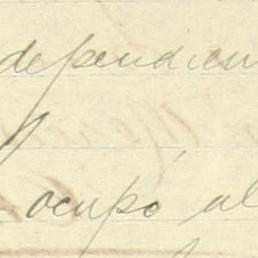 dependien
ocupó al